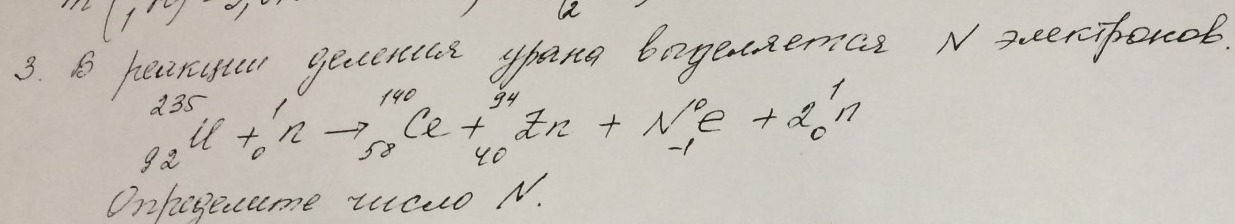 3. В реакции деления урана выделяется N электронов.
²³⁵₉₂U + ¹₀n → ¹⁴⁰₅₈Ce + ⁹⁴₄₀Zn + N⁰₋₁e + 2¹₀n
Определите число N.